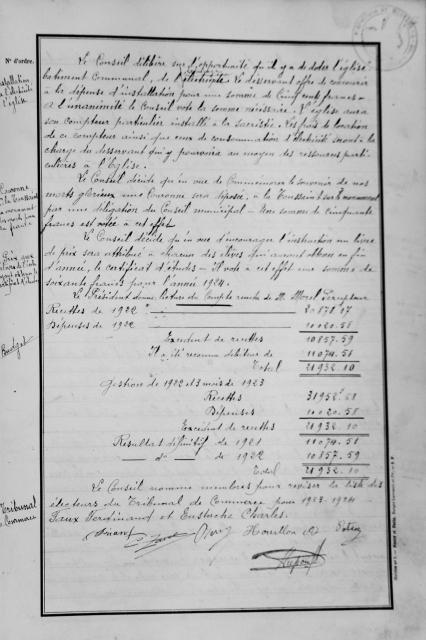 N° d'ordre.
Installation
de l'électricité
à l'église
Le Conseil délibère sur l'opportunité qu'il y a de doter l'église
batiment Communal, de l'électricité. Le desservant offre de concourir
à la dépense d'installation pour une somme de cinq cents francs.
A l'unanimité le Conseil vote la somme nécessaire. L'église aura
son compteur particulier installé à la sacristie. Les frais de location
de ce compteur ainsi que ceux de consommation d'électricité seront à la
charge du desservant qui y pourvoira au moyen des ressources parti-
culières à l'Eglise.
Couronne
à la Toussaint
Le Conseil décide qu'en vue de Commémorer le souvenir de nos
morts glorieux une Couronne sera déposée, à la Toussaint sur le monument
par une délégation du Conseil municipal – Une somme de cinquante
francs est votée à cet effet
Prix aux
Le Conseil décide qu'en vue d'encourager l'instruction un livre
de prix sera attribué à chacun des élèves qui auront obtenu en fin
d'année, le certificat d'études – Il vote à cet effet une somme de
soixante francs pour l'année 1924.
Budget
Le Président donne lecture du Compte rendu de M. Morel Percepteur
Recettes de 1922 20878.17
Dépenses de 1922 10020.58
Excédent de recettes 10857.59
Il a été reconnu débiteur de 11074.51
Total 21932.10
Gestion de 1922 et 3 mois de 1923
Recettes 31952.68
Dépenses 10020.58
Excédent de recettes 21932.10
Résultat définitif de 1921 11074.51
— do — de 1922 10857.59
Total 21932.10
Tribunal
de Commerce
Le Conseil nomme membres pour reviser la liste des
électeurs du Tribunal de Commerce pour 1923-1924
Faux Ferdinand et Eustache Charles.
Hourllon
Dupont